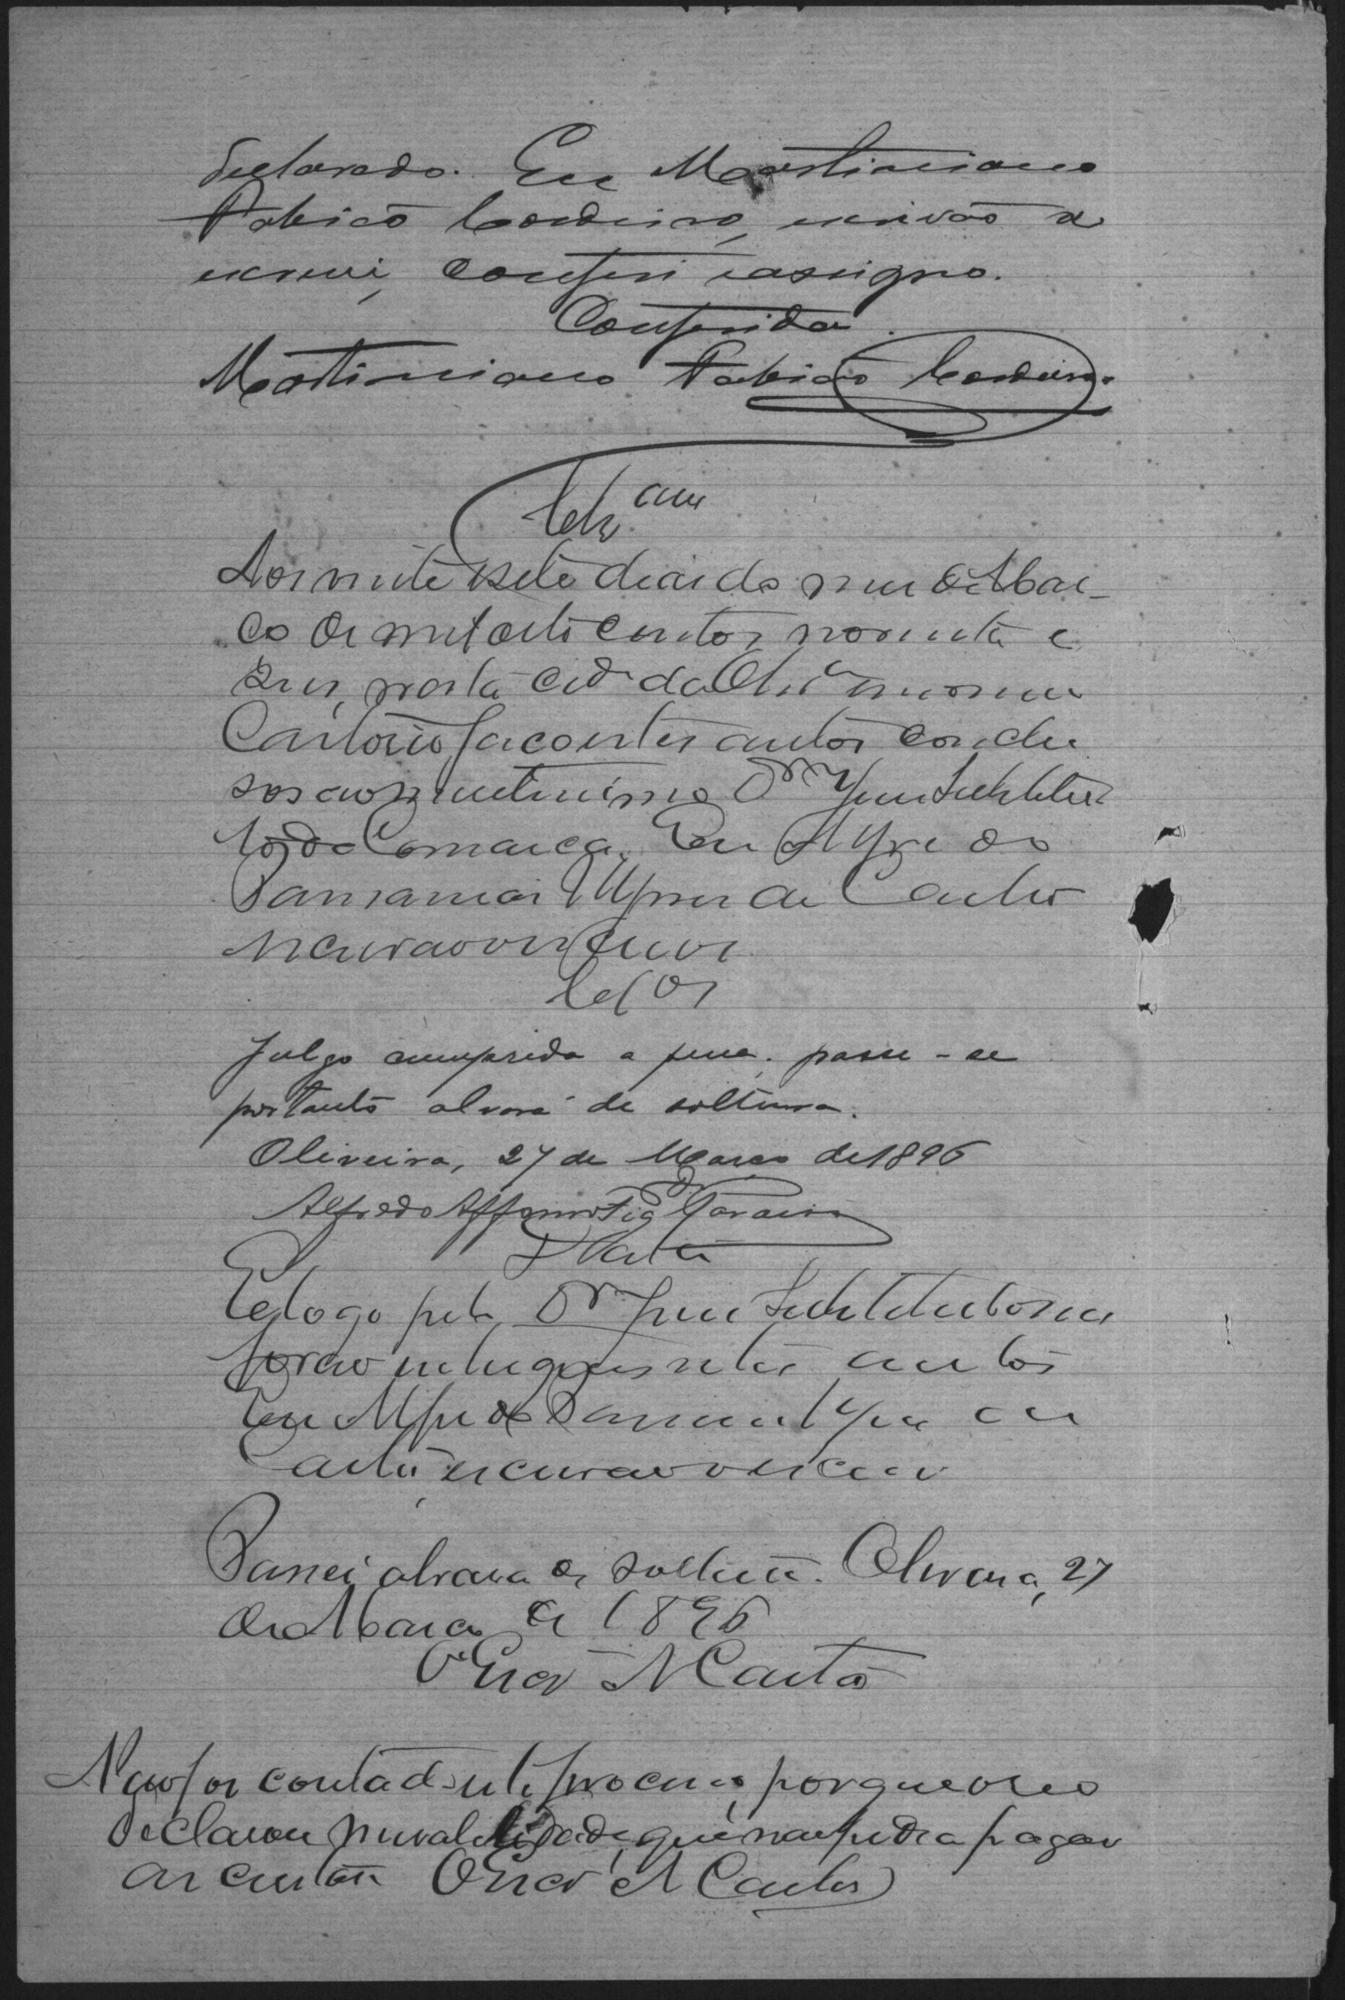 declarado. Eu Martiniano
Fabião Cordeiro, escrivão o
escrevi, conferi e assigno.
Conferida.
Martiniano Fabião Cordeiro.
Clz.am
Aos vinte e sete dias do mez de Mar-
ço de mil oito centos noventa e
seis, nesta cid.e da Olivr.a em meu
Cartorio faço estes autos conclu
sos ao meretissimo Dr Juiz Substitu
to da Comarca. Eu Alfredo
de Castro
escrivão escrevi
Clsos
Julgo cumprida a pena, passe-se
portanto alvará de soltura.
Oliveira, 27 de Março de 1896
Alfredo Affonso
Data
E logo pelo Dr Juiz Substituto me
forão entregues estes autos
Eu Alfredo
Castro escrivão o escrevi
Passei alvara de soltura. Oliveira, 27
de Março de 1896
O Escr.
Castro
Não foi contado este processo, porque o reo
declarou que não podia pagar
as custas O Escr.
Castro